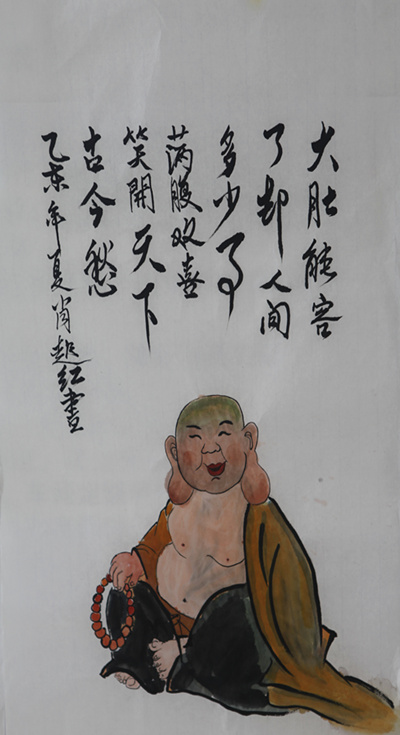 大肚能容
了却人间
多少事
满腹欢喜
笑開天下
古今愁
乙亥年夏肖起红画